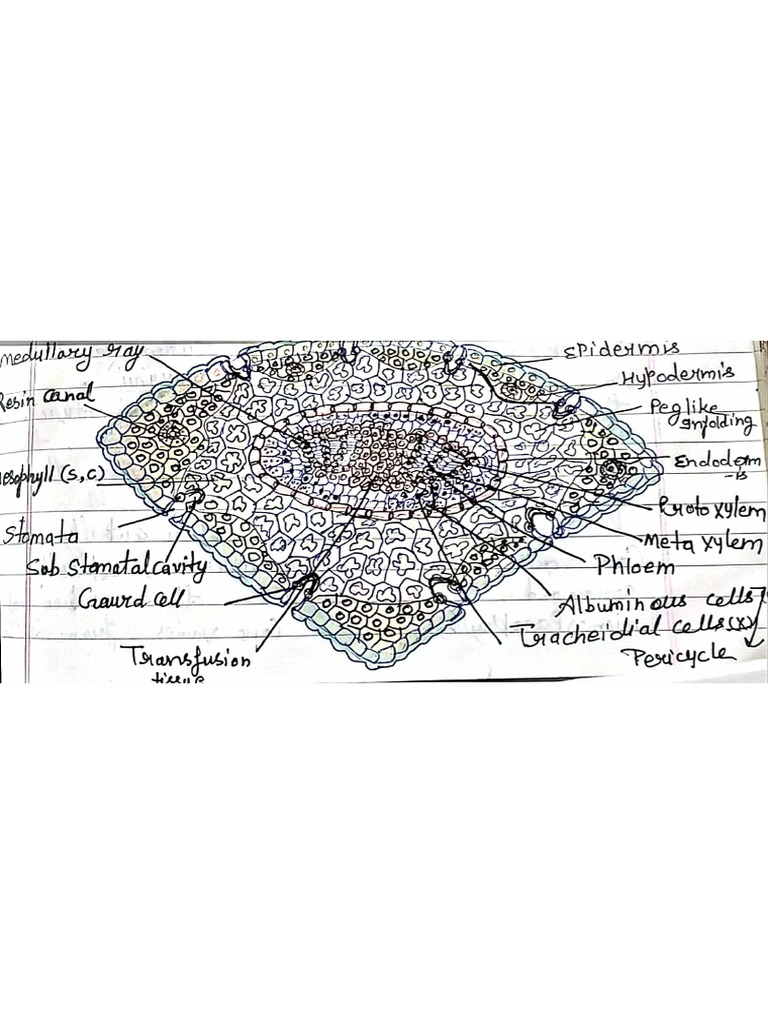 medullary ray
Resin canal
mesophyll (s,c)
Stomata
Sub Stomatal cavity
Gaurd cell
Transfusion
tissue
Epidermis
Hypodermis
Peg like
Infolding
Endoderm
-is
Proto xylem
Meta xylem
Phloem
Albuminous cells
Tracheidial cells (x)
Pericycle